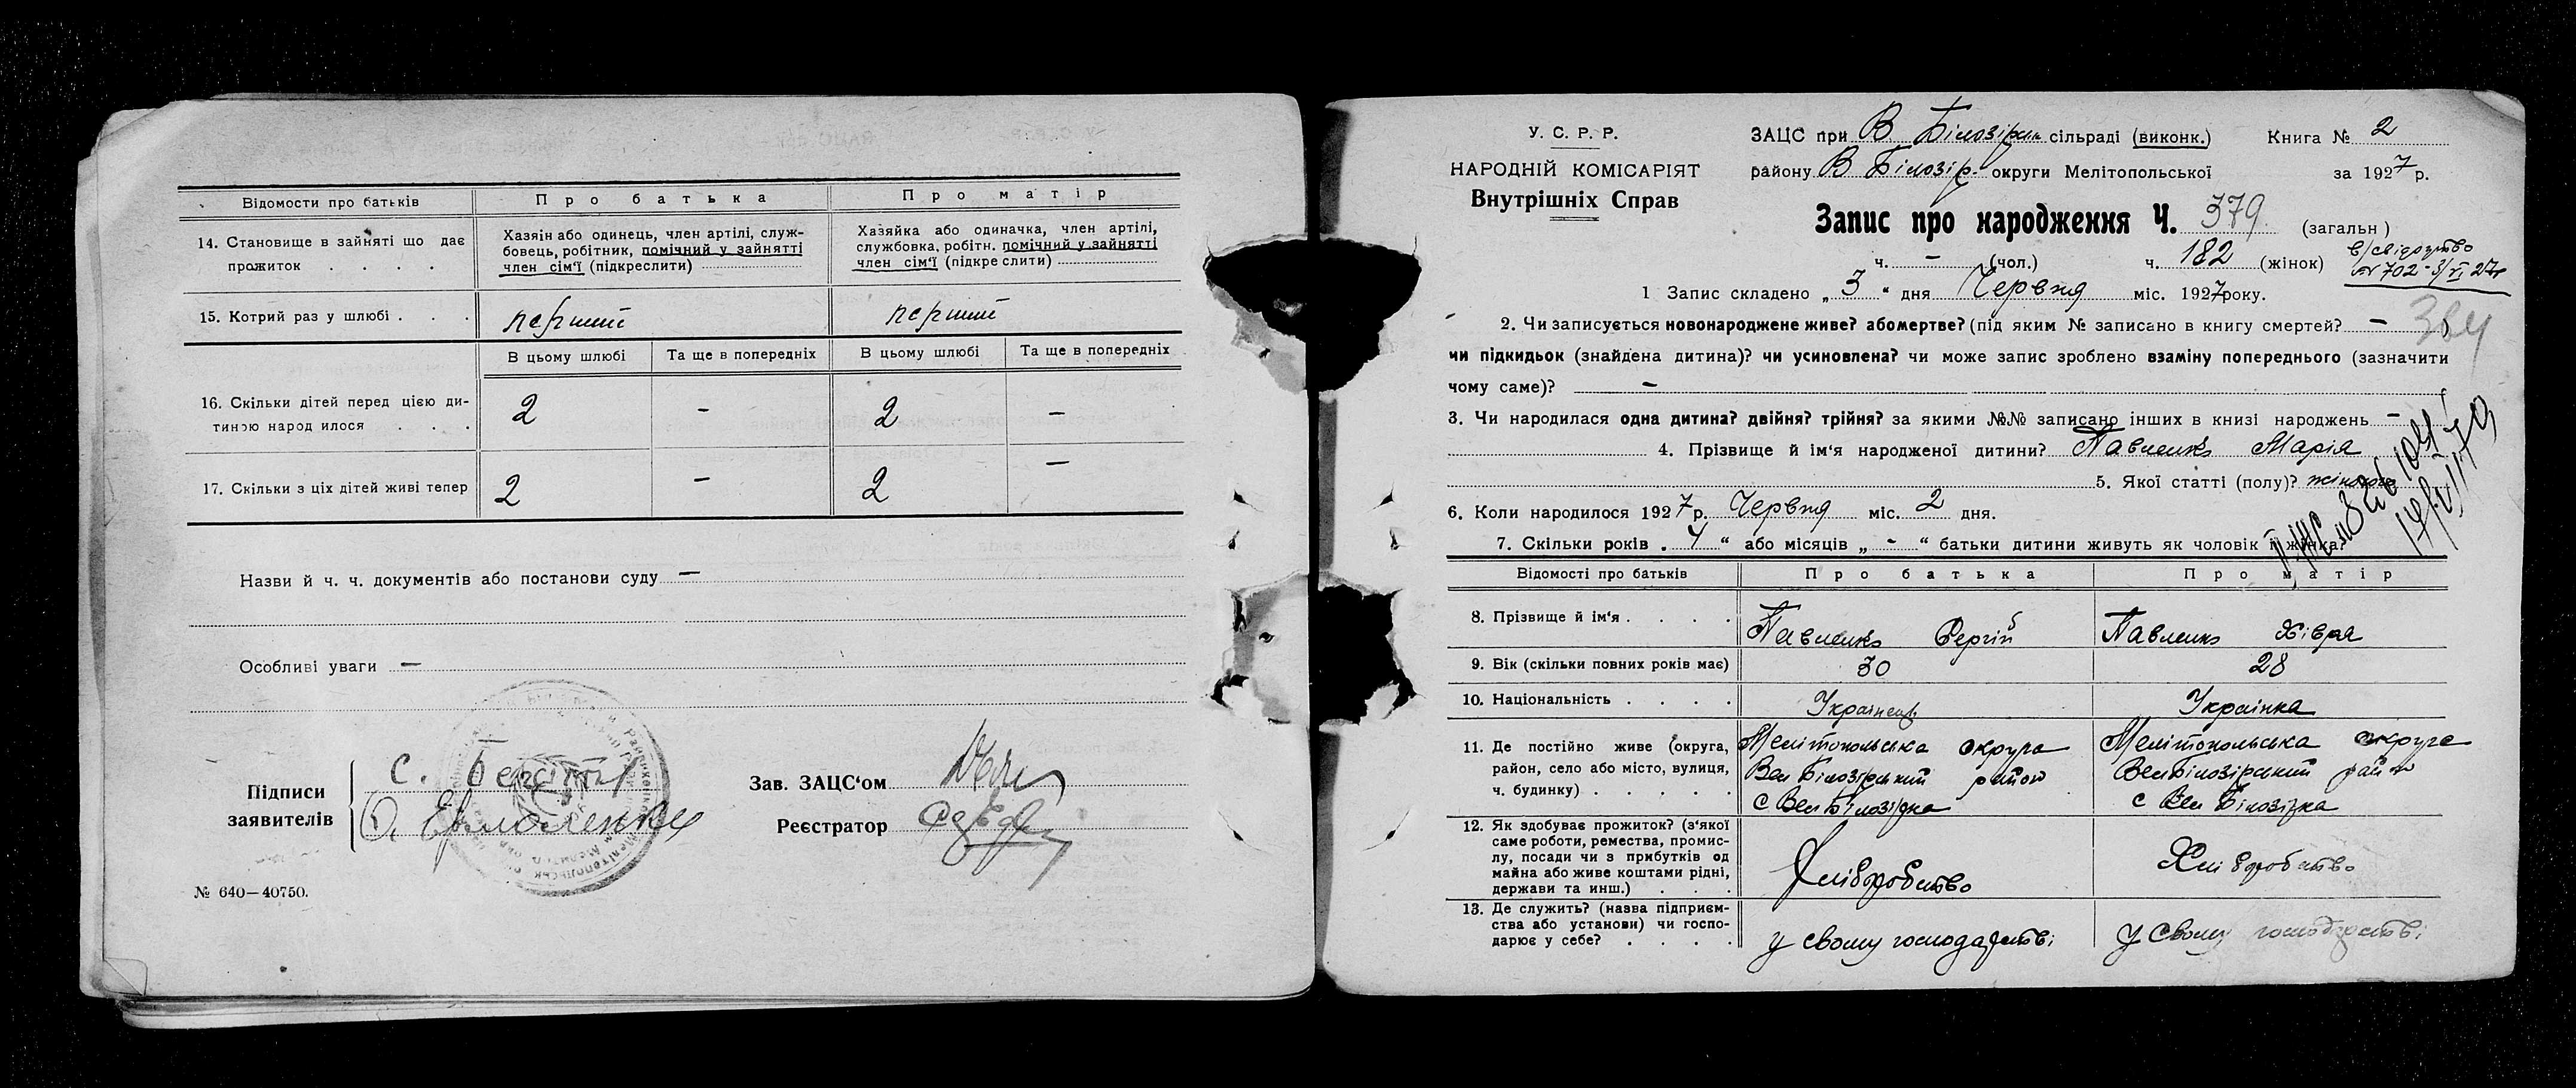 Відомости про батьків
Про батька
Про матір
14. Становище в зайняті що дає прожиток . . . .
Хазяін або одинець, член артілі, служ-
бовець, робітник, помічний у зайнятті
член сім'ї (підкреслити)
Хазяйка або одиначка, член артілі,
службовка, робітн. помічний у зайнятті
член сім'ї (підкреслити)
15. Котрий раз у шлюбі . . .
перший
перший
В цьому шлюбі
Та ще в попередніх
В цьому шлюбі
Та ще в попередніх
16. Скільки дітей перед цією ди-
тиною народилося . . .
2 - 2 -
17. Скільки з ціх дітей живі тепер
2 - 2 -
Назви й ч. ч. документів або постанови суду —
Особливі уваги —
Підписи
заявителів
С.
Зав. ЗАЦС'ом
Реєстратор
№ 640—40750.
У. С. Р. Р.
НАРОДНІЙ КОМІСАРІЯТ
Внутрішніх Справ
ЗАЦС при В Білозірськ сільраді (виконк.) Книга № 2
району В Білозір. округи Мелітопольської за 1927 р.
Запис про народження Ч. 379 (загальн)
ч. — (чол.) ч. 182 (жінок)
в/свідоцтво
№ 702 - 3/VI 27р
1 Запис складено „ 3 “ дня Червня міс. 1927 року.
2. Чи записується новонароджене живе? або мертве? (під яким № записано в книгу смертей? —
чи підкидьок (знайдена дитина)? чи усиновлена? чи може запис зроблено взаміну попереднього (зазначити
чому саме)? —
3. Чи народилася одна дитина? двійня? трійня? за якими №№ записано інших в книзі народжень —
4. Прізвище й ім'я народженої дитини? Павленко Марія
5. Якої статті (полу)? жіночого
6. Коли народилося 1927 р. Червня міс. 2 дня.
7. Скільки років „ 4 “ або місяців „ - “ батьки дитини живуть як чоловік й жінка?
Відомості про батьків
Про батька
Про матір
8. Прізвище й ім'я . . . .
Павленко Сергій
Павленко Хівря
9. Вік (скільки повних років має)
30
28
10. Національність . . . .
Українець
Українка
11. Де постійно живе (округа,
район, село або місто, вулиця,
ч. будинку) . . . . .
Мелітопольська округа
Вел Білозірський район
с Вел Білозірка
Мелітопольська округа
Вел Білозірський район
с Вел Білозірка
12. Як здобуває прожиток? (з'якої
саме роботи, ремества, промис-
лу, посади чи з прибутків од
майна або живе коштами рідні,
держави та инш.) . . .
Хліборобство
Хліборобство
13. Де служить? (назва підприєм-
ства або установи) чи госпо-
дарює у себе? . . . .
у свому господарстві
у свому господарстві